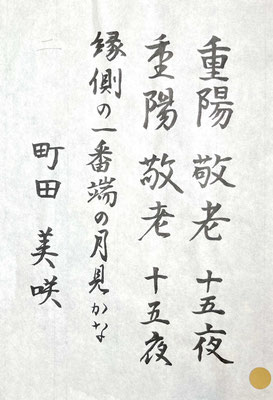 重陽 敬老 十五夜
重陽 敬老 十五夜
縁側の一番端の月見かな
町田 美咲